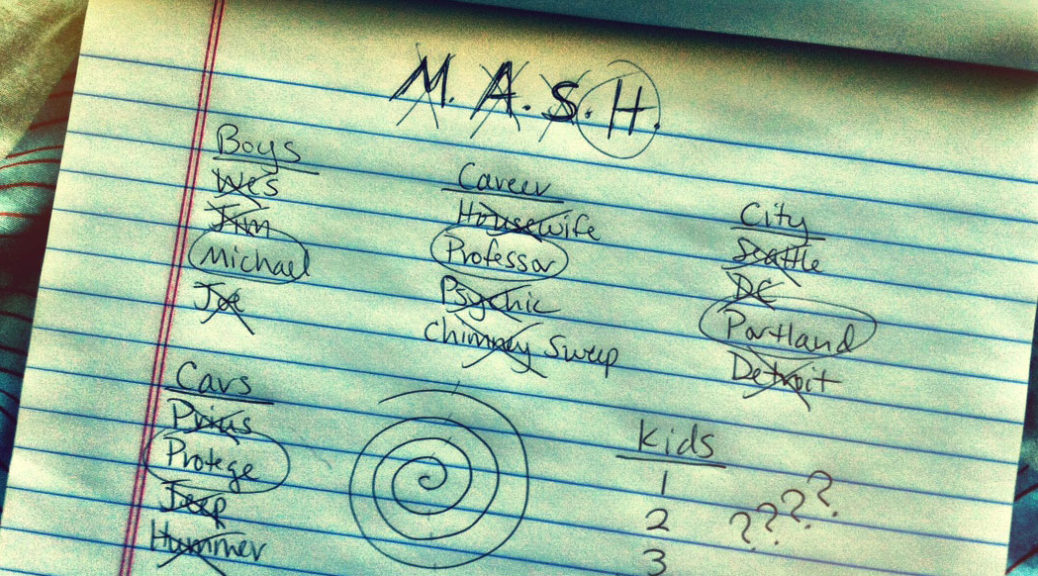 M.A.S.H.
Boys
Wes
Jim
Michael
Joe
Career
Housewife
Professor
Psychic
Chimney Sweep
City
Seattle
DC
Portland
Detroit
Cars
Prius
Protege
Jeep
Hummer
Kids
1
2 ????
3